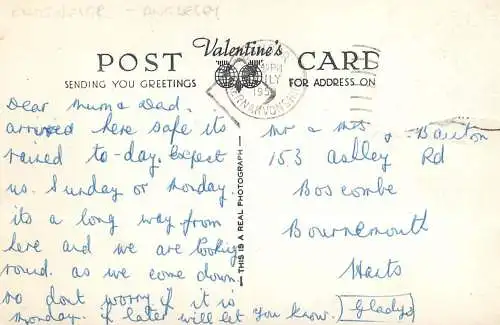 - ANGLESEY
Valentine's
POST CARD
SENDING YOU GREETINGS
FOR ADDRESS ON
JLY
195
CAERNARVONSHIRE
THIS IS A REAL PHOTOGRAPH
Dear Mum & Dad.
arrived here safe its
rained to-day. Expect
us. Sunday or Monday.
its a long way from
here and we are looking
round. as we come down.
so dont worry if it is
Monday. if later will let you know. Gladys
Mr & Mrs Bauton
153 Ashley Rd
Boscombe
Bournemouth
Hants